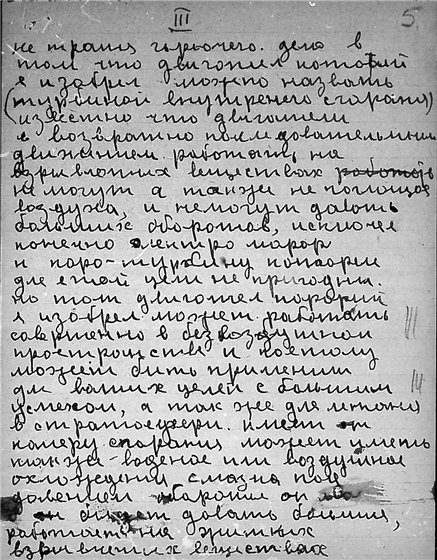 III 5
не тратя горючего. дело в
том что двигател которий
я изабрел можно назвать
(турбиной внутренего сгарания)
известно что двигатели
с возвратно последовательним
движением. работать на
взривчатих веществах работать
не могут а также не поглощая
воздуха, и немогут давать
больших оборотов, исключая
конечно электро мотор
и паро-турбину которые
для етой цели не пригодни.
но тот двигател которий
я изобрел. может работать
совершенно в безвоздушном
пространстве и поетому
может бить применим
для ваших целей с большим
успехом, а так же для летания
в стратосфери. имеет
камеру сгарания может иметь
также-водяное или воздушное
охлождения смазка под
давением оборотов он
он будет давать больших,
работает на жидких
взривчатих веществах